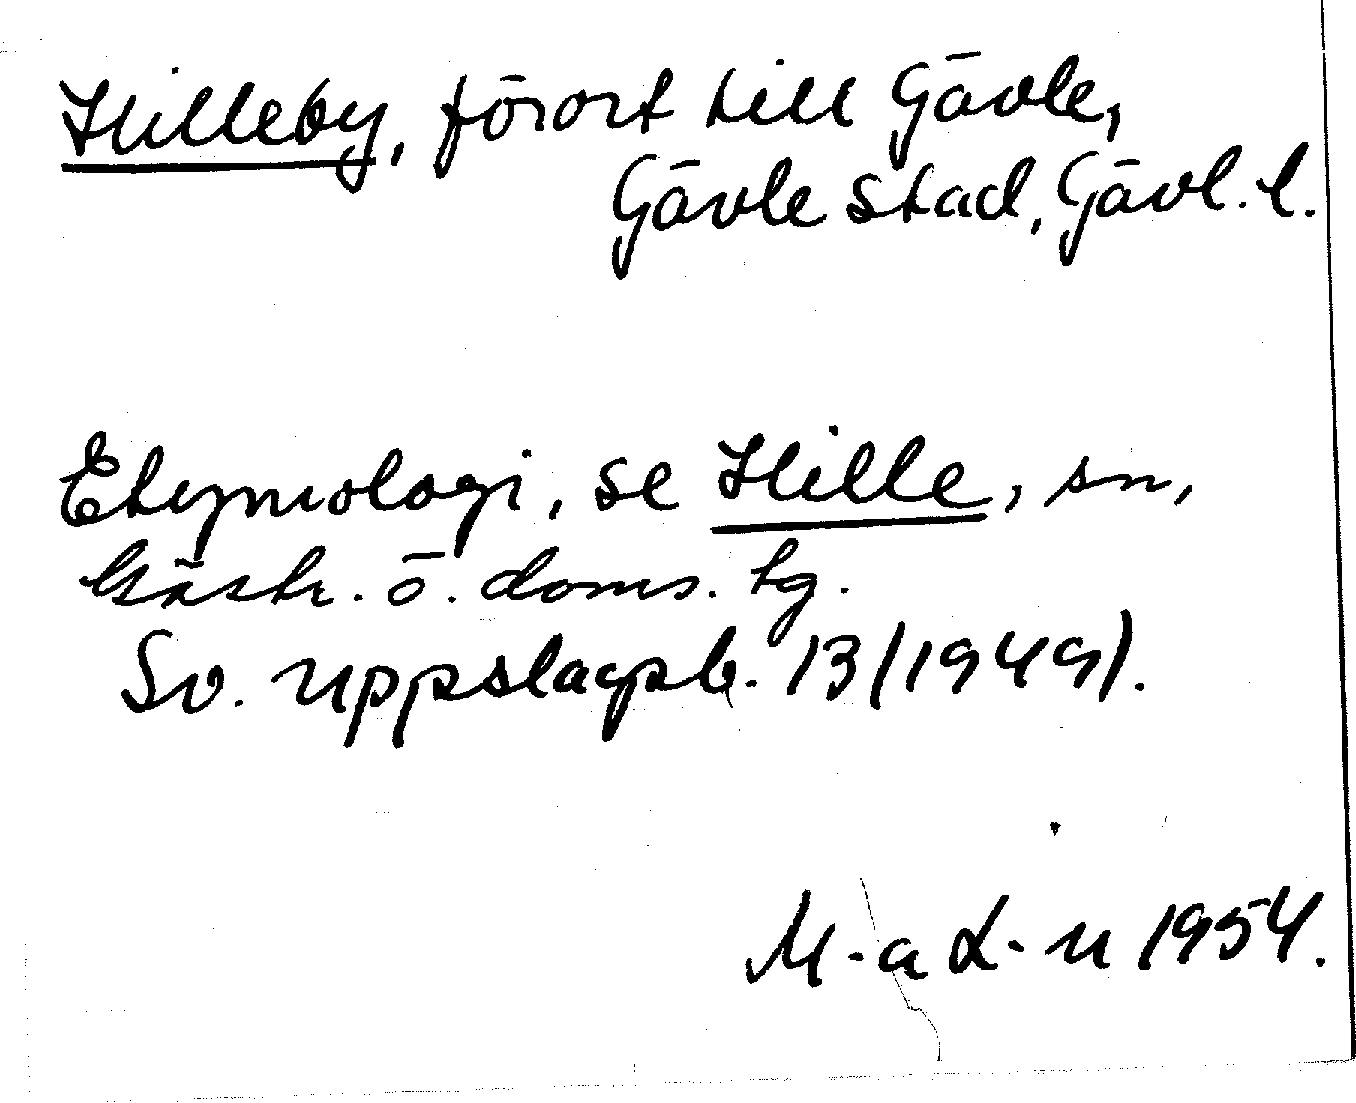 Hilleby, förort till Gävle,
Gävle stad, Gävl. l.
Etymologi, se Hille, sn,
Gästr. ö. doms. tg.
Sv. uppslagsb. 13 (1949).
M-a L-n 1954.